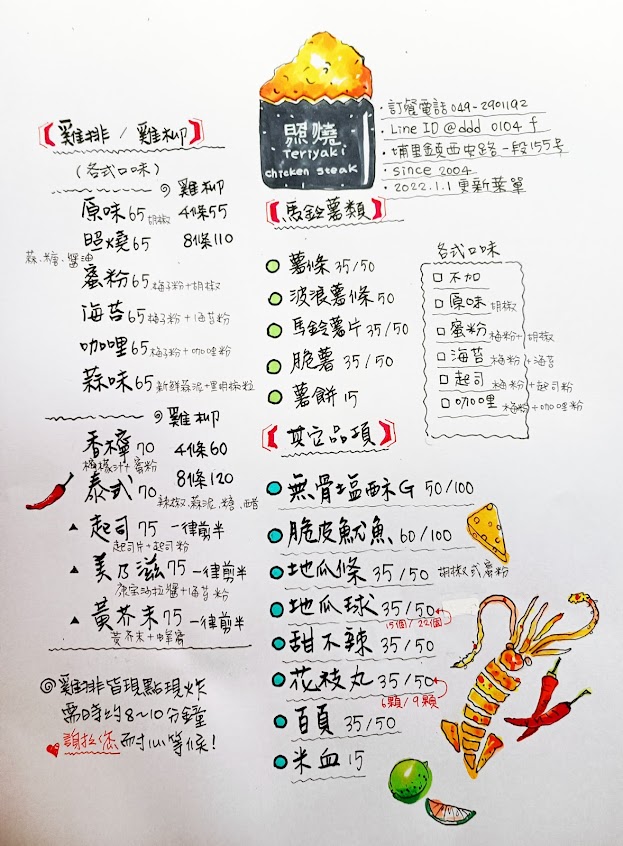 照燒
Teriyaki
chicken steak
・訂餐電話 049-2901192
・Line ID @ddd 0104 f
・埔里鎮西安路一段155号
・since 2004
・2022.1.1 更新菜單
【雞排 / 雞柳】
(各式口味)
雞柳
原味65 胡椒 4條55
照燒65 8條110
蒜、糖、醬油
蜜粉65 梅子粉+胡椒
海苔65 梅子粉+海苔粉
咖哩65 梅子粉+咖哩粉
蒜味65 新鮮蒜泥+黑胡椒粒
雞柳
香檸70 4條60
檸檬汁+蜜粉
泰式70 8條120
辣椒、蒜泥、糖、醋
▲ 起司75 一律剪半
起司片+起司粉
▲ 美乃滋75 一律剪半
沙拉醬+海苔粉
▲ 黃芥末75 一律剪半
黃芥末+蜂蜜
雞排皆現點現炸
需時約8~10分鐘
請拉您耐心等候!
【馬鈴薯類】
薯條 35/50
波浪薯條 50
馬鈴薯片 35/50
脆薯 35/50
薯餅 15
各式口味
□ 不加
□ 原味 胡椒
□ 蜜粉 梅粉+胡椒
□ 海苔 梅粉+海苔
□ 起司 梅粉+起司粉
□ 咖哩 梅粉+咖哩粉
【其它品項】
無骨塩酥G 50/100
脆皮魷魚 60/100
地瓜條 35/50 胡椒或蜜粉
地瓜球 35/50
15個/22個
甜不辣 35/50
花枝丸 35/50
6顆/9顆
百頁 35/50
米血 15